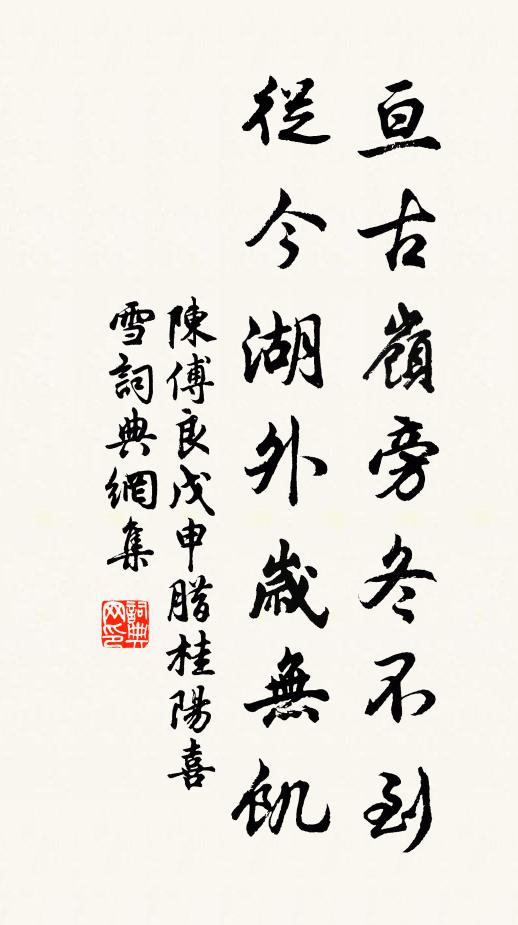 亘古嶺旁冬不到
從今湖外歲無飢
陳傅良戊申腊桂陽喜
雪詞典網集
詞典网印